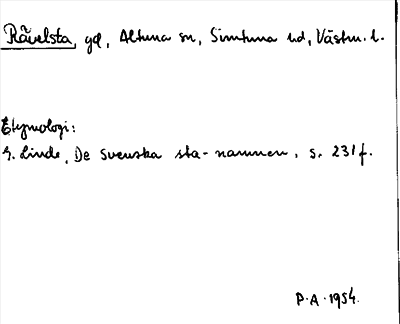 Rävelsta, gd, Altuna sn, Simtuna hd, Västm. l.
Etymologi:
G. Linde, De svenska sta-namnen, s. 231 f.
P.A. 1954.